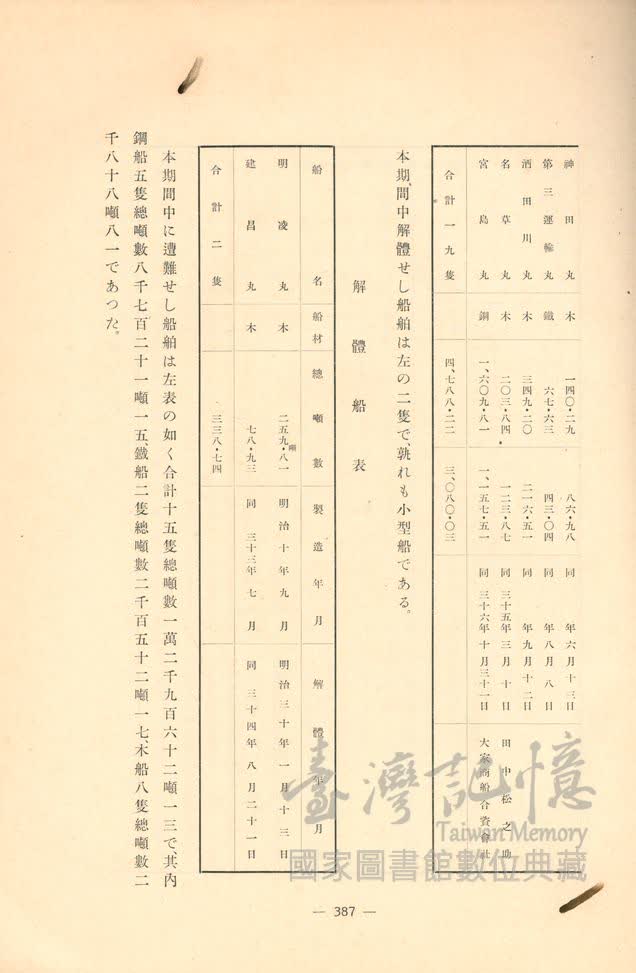 神田丸 木 一四〇・二九 八六・九八 同 年六月十三日
第三運輸丸 鐵 六七・六三 四三・〇四 同 年八月八日
酒田川丸 木 三四九・二〇 二一六・五一 同 年九月十二日
名草丸 木 二〇三・八四 一二三・八七 同 三十五年三月十日 田中松之助
宮島丸 鋼 一、六〇九・八一 一、一五七・五一 同 三十六年十月三十一日 大家商船合資會社
合計一九隻 四、七八八・二二 三、〇八〇・〇三
本期間中解體せし船舶は左の二隻で、孰れも小型船である。
解體船表
船名 船材 總噸數 製造年月 解體年月
明凌丸 木 二五九・八一噸 明治十年九月 明治三十年一月十三日
建昌丸 木 七八・九三 同 三十三年七月 同 三十四年八月二十一日
合計二隻 三三八・七四
本期間中に遭難せし船舶は左表の如く合計十五隻總噸數一萬二千九百六十二噸一三で、其內
鋼船五隻總噸數八千七百二十一噸一五、鐵船二隻總噸數二千百五十二噸一七、木船八隻總噸數二
千八十八噸八一であつた。
— 387 —
臺灣記憶
Taiwan Memory
國家圖書館數位典藏